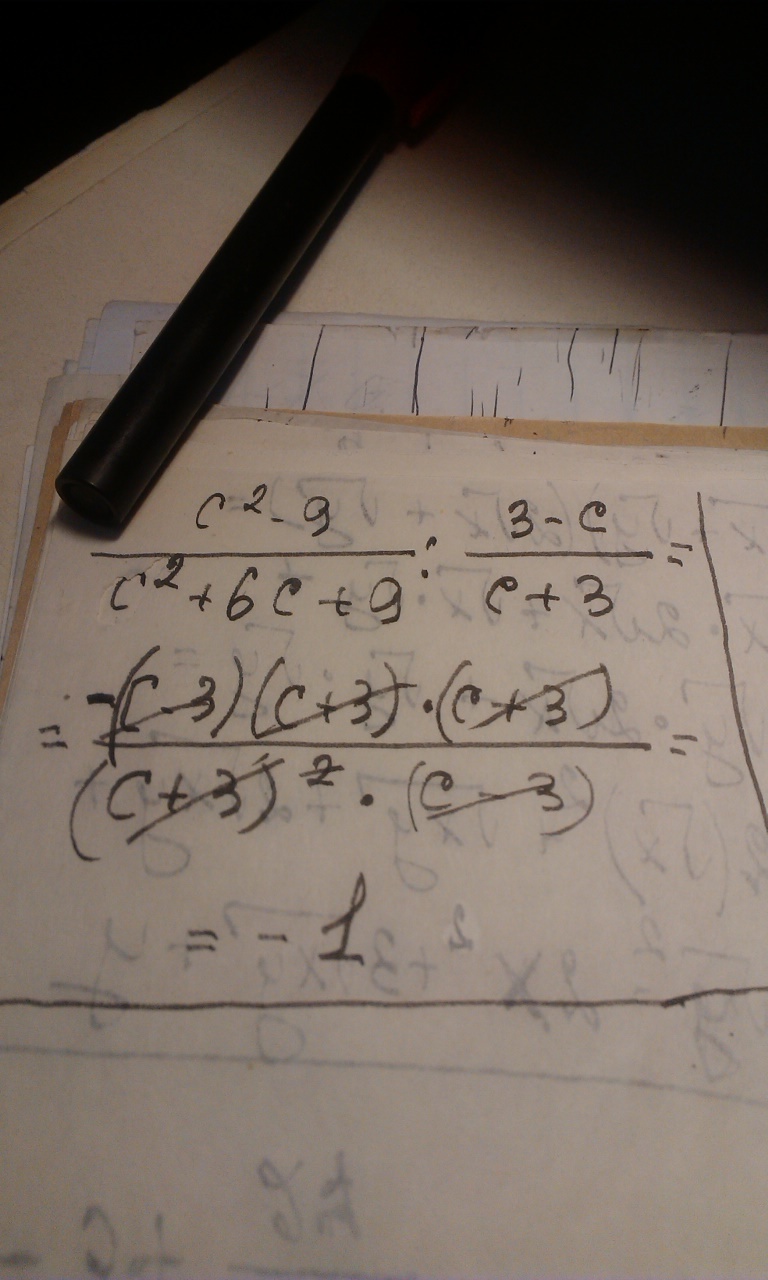 c²-9 / c²+6c+9 : 3-c / c+3 =
= -(c-3)(c+3)·(c+3) / (c+3)²·(c-3) =
= -1